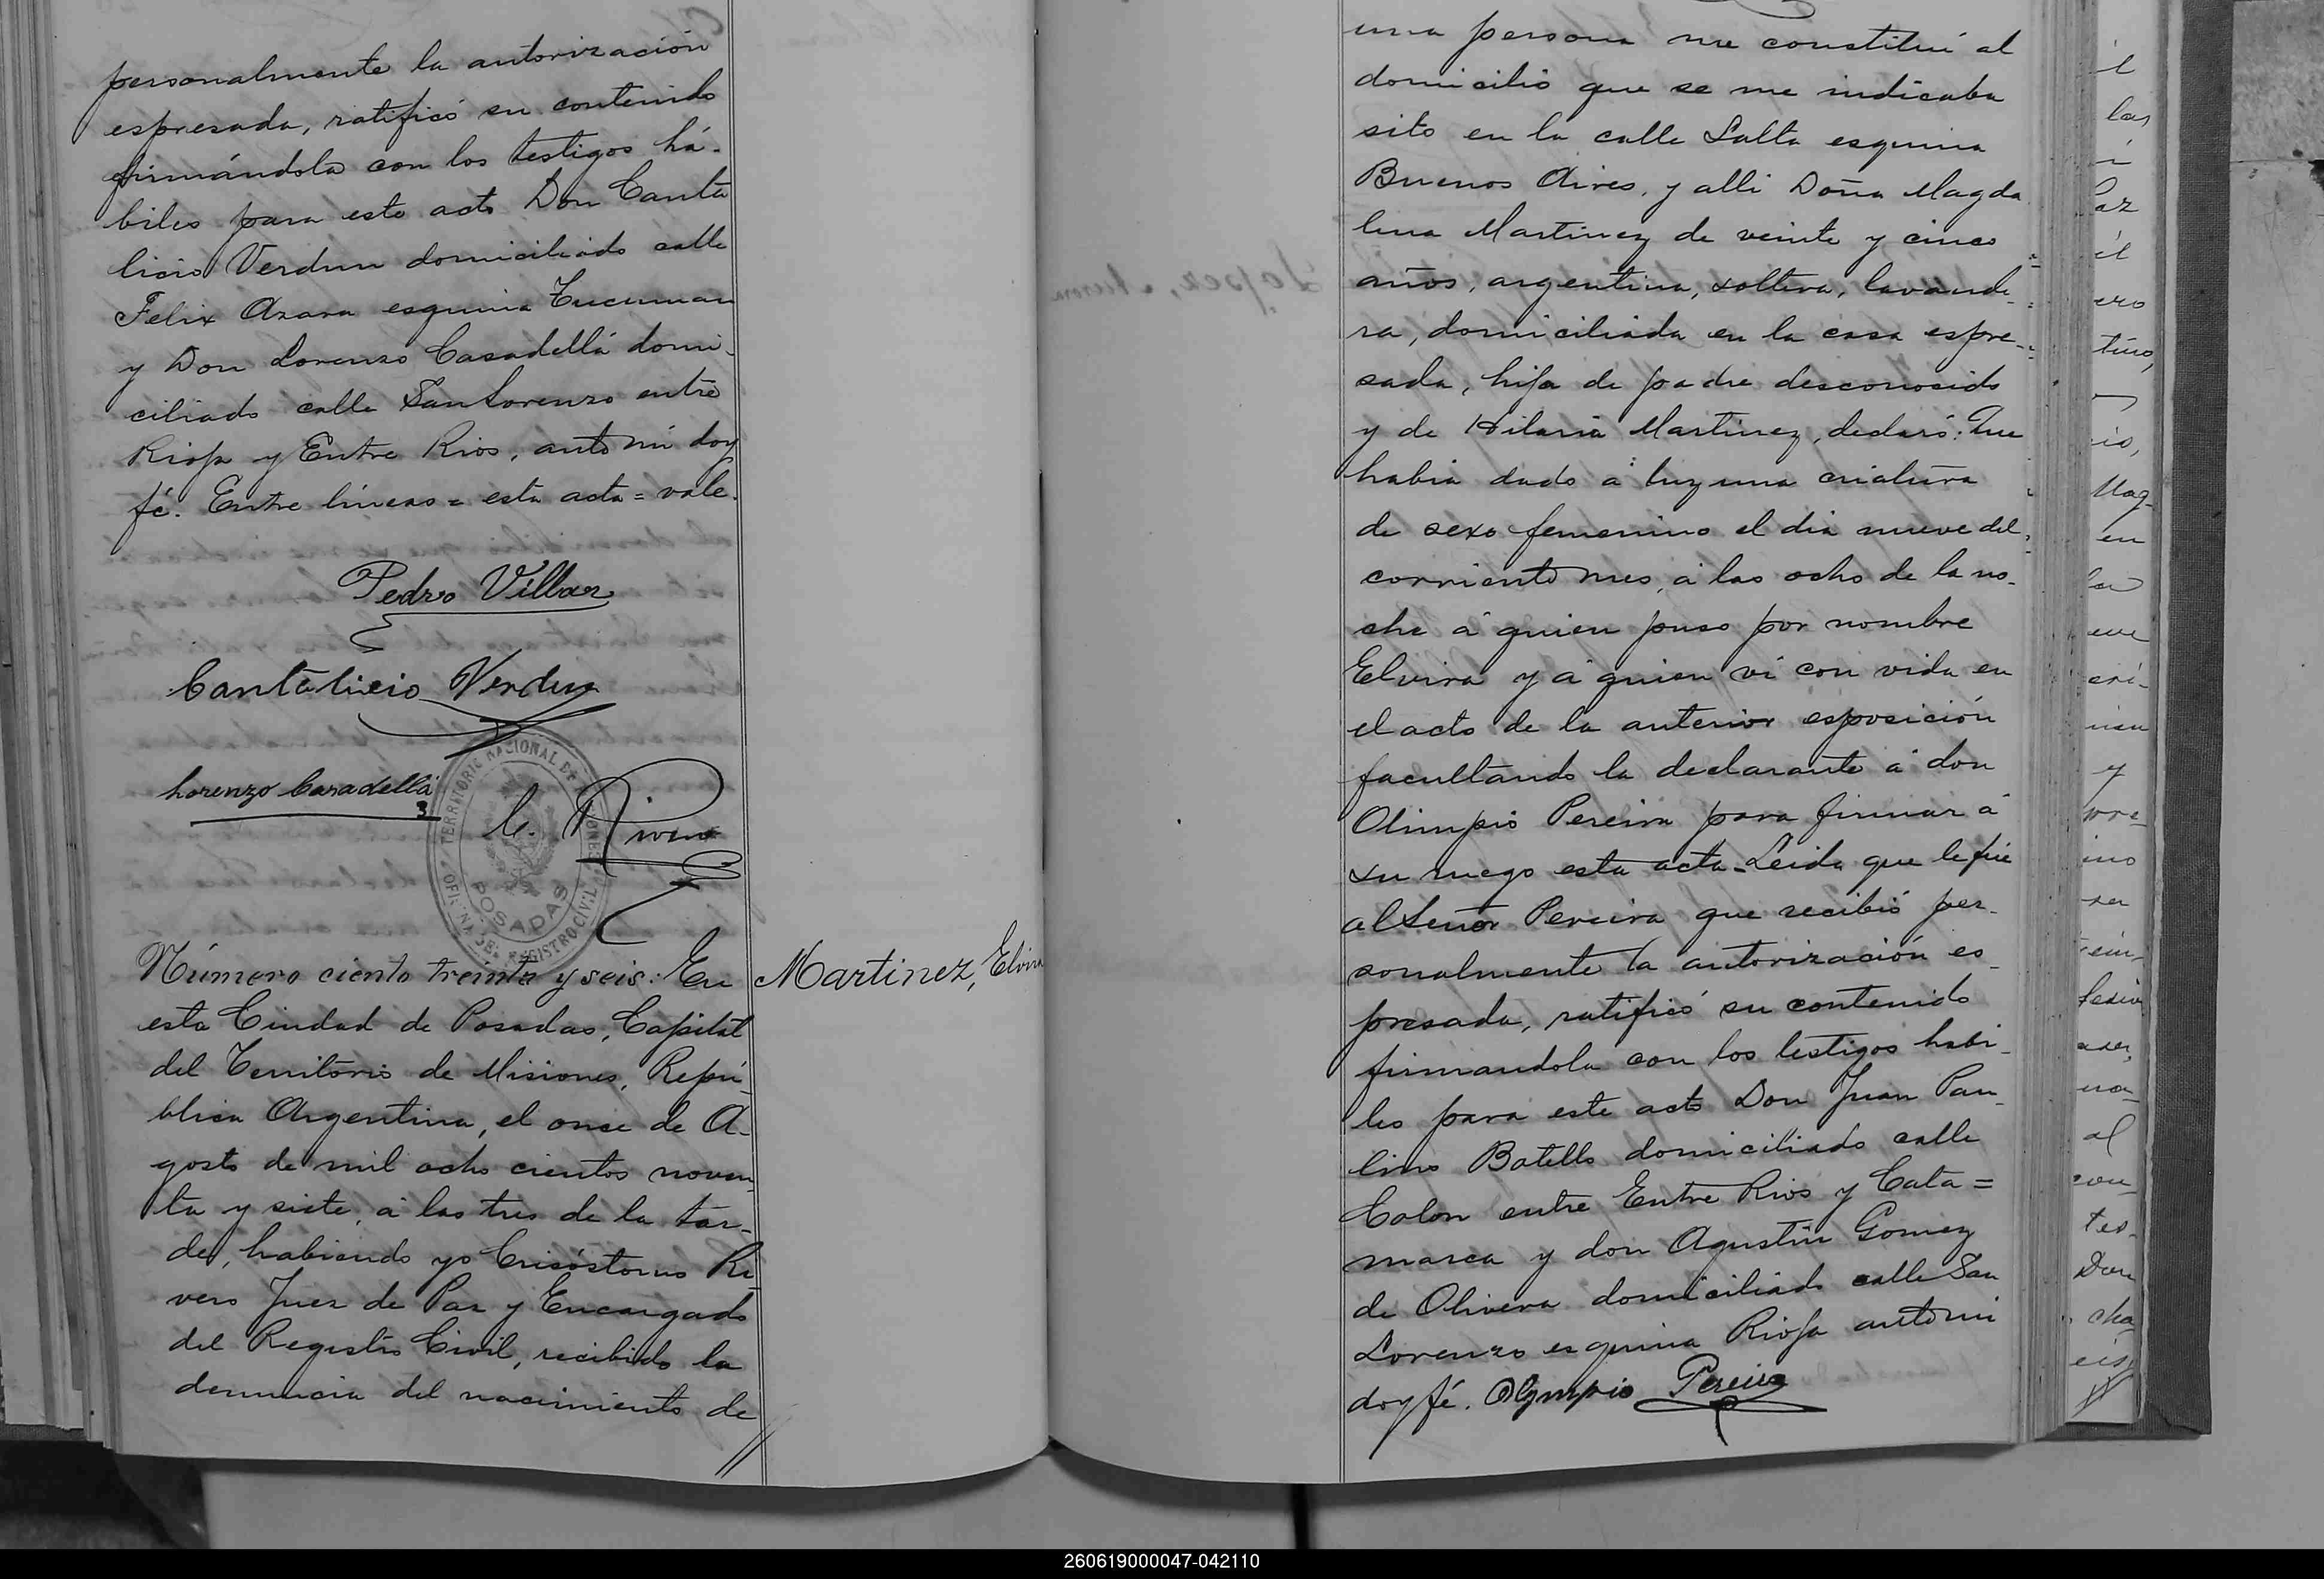 personalmente la autorización
espresada, ratificó su contenido
firmándola con los testigos há-
biles para este acto Don Canta
licio Verdun domiciliado calle
Felix Azara esquina Tucuman
y Don Lorenzo Casadellá domi-
ciliado calle San Lorenzo entre
Rioja y Entre Rios, ante mi doy
fé. Entre líneas = esta acta = vale.
Pedro Villar
Cantalicio Verdun
Lorenzo Casadellá
C. Rivero
TERRITORIO NACIONAL DE MISIONES
POSADAS
OFICINA DEL REGISTRO CIVIL
Número ciento treinta y seis: En
Martinez, Elvira
esta Ciudad de Posadas, Capital
del Territorio de Misiones, Repú-
blica Argentina, el once de A-
gosto de mil ocho cientos noven-
ta y siete, á las tres de la tar-
de, habiendo yo Crisóstomo Ri-
vero Juez de Paz y Encargado
del Registro Civil, recibido la
denuncia del nacimiento de
una persona me constituí al
domicilio que se me indicaba
sito en la calle Salta esquina
Buenos Aires, y alli Doña Magda
lena Martinez de veinte y cinco
años, argentina, soltera, lavande-
ra, domiciliada en la casa espre-
sada, hija de padre desconosido
y de Hilaria Martinez, declaró: Que
habia dado á luz una criatura
de sexo femenino el dia nueve del
corriente mes, á las ocho de la no-
che á quien puso por nombre
Elvira y á quien vi con vida en
el acto de la anterior esposición
facultando la declarante á don
Olimpio Pereira para firmar á
su ruego esta acta - Leida que le fué
al Señor Pereira que recibió per-
sonalmente la autorización es-
presada, ratificó su contenido
firmandola con los testigos habi-
les para este acto Don Juan Pau-
lino Botello domiciliado calle
Colon entre Entre Rios y Cata=
marca y don Agustin Gomez
de Olivera domiciliado calle San
Lorenzo esquina Rioja ante mi
doy fé. Olympio Pereira
260619000047-042110